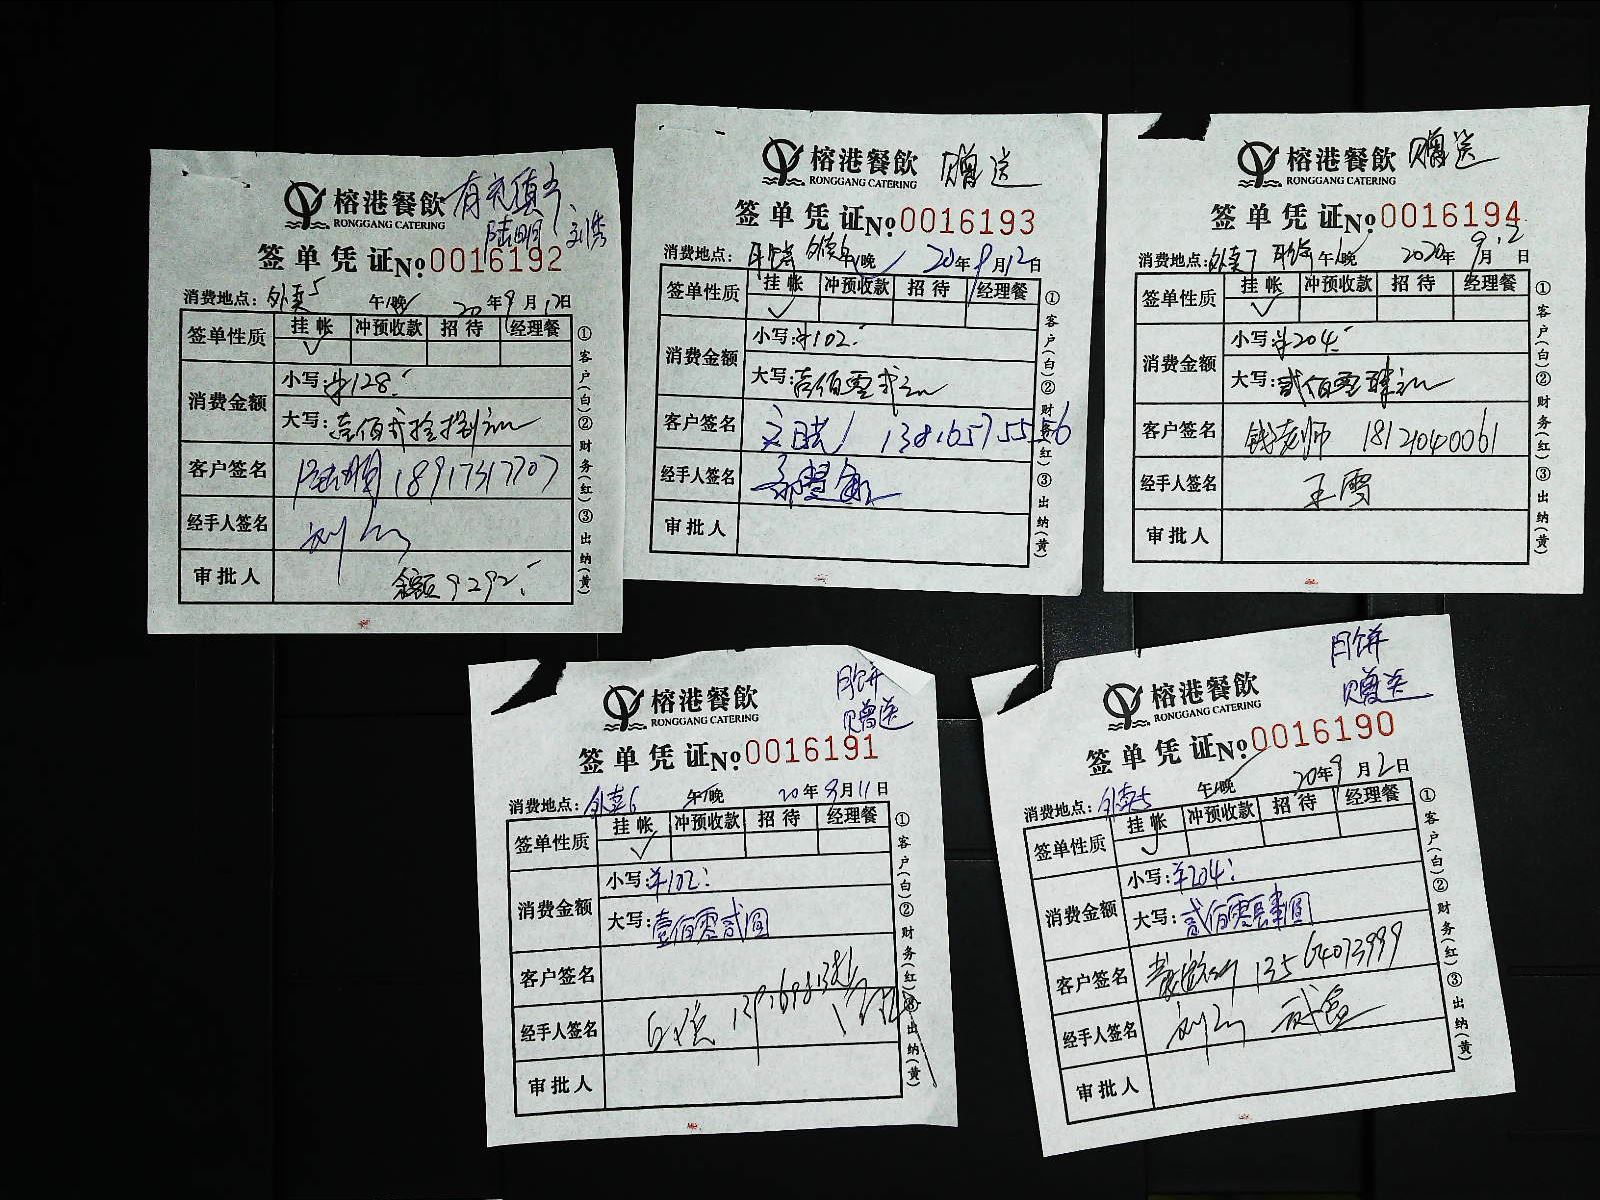 榕港餐飲 有充值卡
RONGGANG CATERING 陆明 刘秀
签单凭证 No: 0016192
消费地点: 外卖5 午/晚 20年9月12日
签单性质 挂帐 冲预收款 招待 经理餐
✓
消费金额 小写: ¥128.-
大写: 壹佰贰拾捌元
客户签名 陆明 18917317707
经手人签名 刘
审批人 余额9292.-
①客户(白)②财务(红)③出纳(黄)
榕港餐飲 赠送
RONGGANG CATERING
签单凭证 No: 0016193
消费地点: 月饼 外卖 午/晚 20年9月12日
签单性质 挂帐 冲预收款 招待 经理餐
✓
消费金额 小写: ¥102.-
大写: 壹佰零贰元
客户签名 13816575556
经手人签名
审批人
①客户(白)②财务(红)③出纳(黄)
榕港餐飲 赠送
RONGGANG CATERING
签单凭证 No: 0016194
消费地点: 外卖7 月饼 午/晚 2020年9月12日
签单性质 挂帐 冲预收款 招待 经理餐
✓
消费金额 小写: ¥204.-
大写: 贰佰零肆元
客户签名 钱老师 18121040061
经手人签名 王雪
审批人
①客户(白)②财务(红)③出纳(黄)
榕港餐飲 月饼
RONGGANG CATERING 赠送
签单凭证 No: 0016191
消费地点: 外卖6 午/晚 20年9月11日
签单性质 挂帐 冲预收款 招待 经理餐
✓
消费金额 小写: ¥102.-
大写: 壹佰零贰圆
客户签名
经手人签名
审批人
①客户(白)②财务(红)③出纳(黄)
榕港餐飲 月饼
RONGGANG CATERING 赠送
签单凭证 No: 0016190
消费地点: 外卖5 午/晚 20年9月2日
签单性质 挂帐 冲预收款 招待 经理餐
✓
消费金额 小写: ¥204.-
大写: 贰佰零肆圆
客户签名 13564073999
经手人签名 刘
审批人
①客户(白)②财务(红)③出纳(黄)